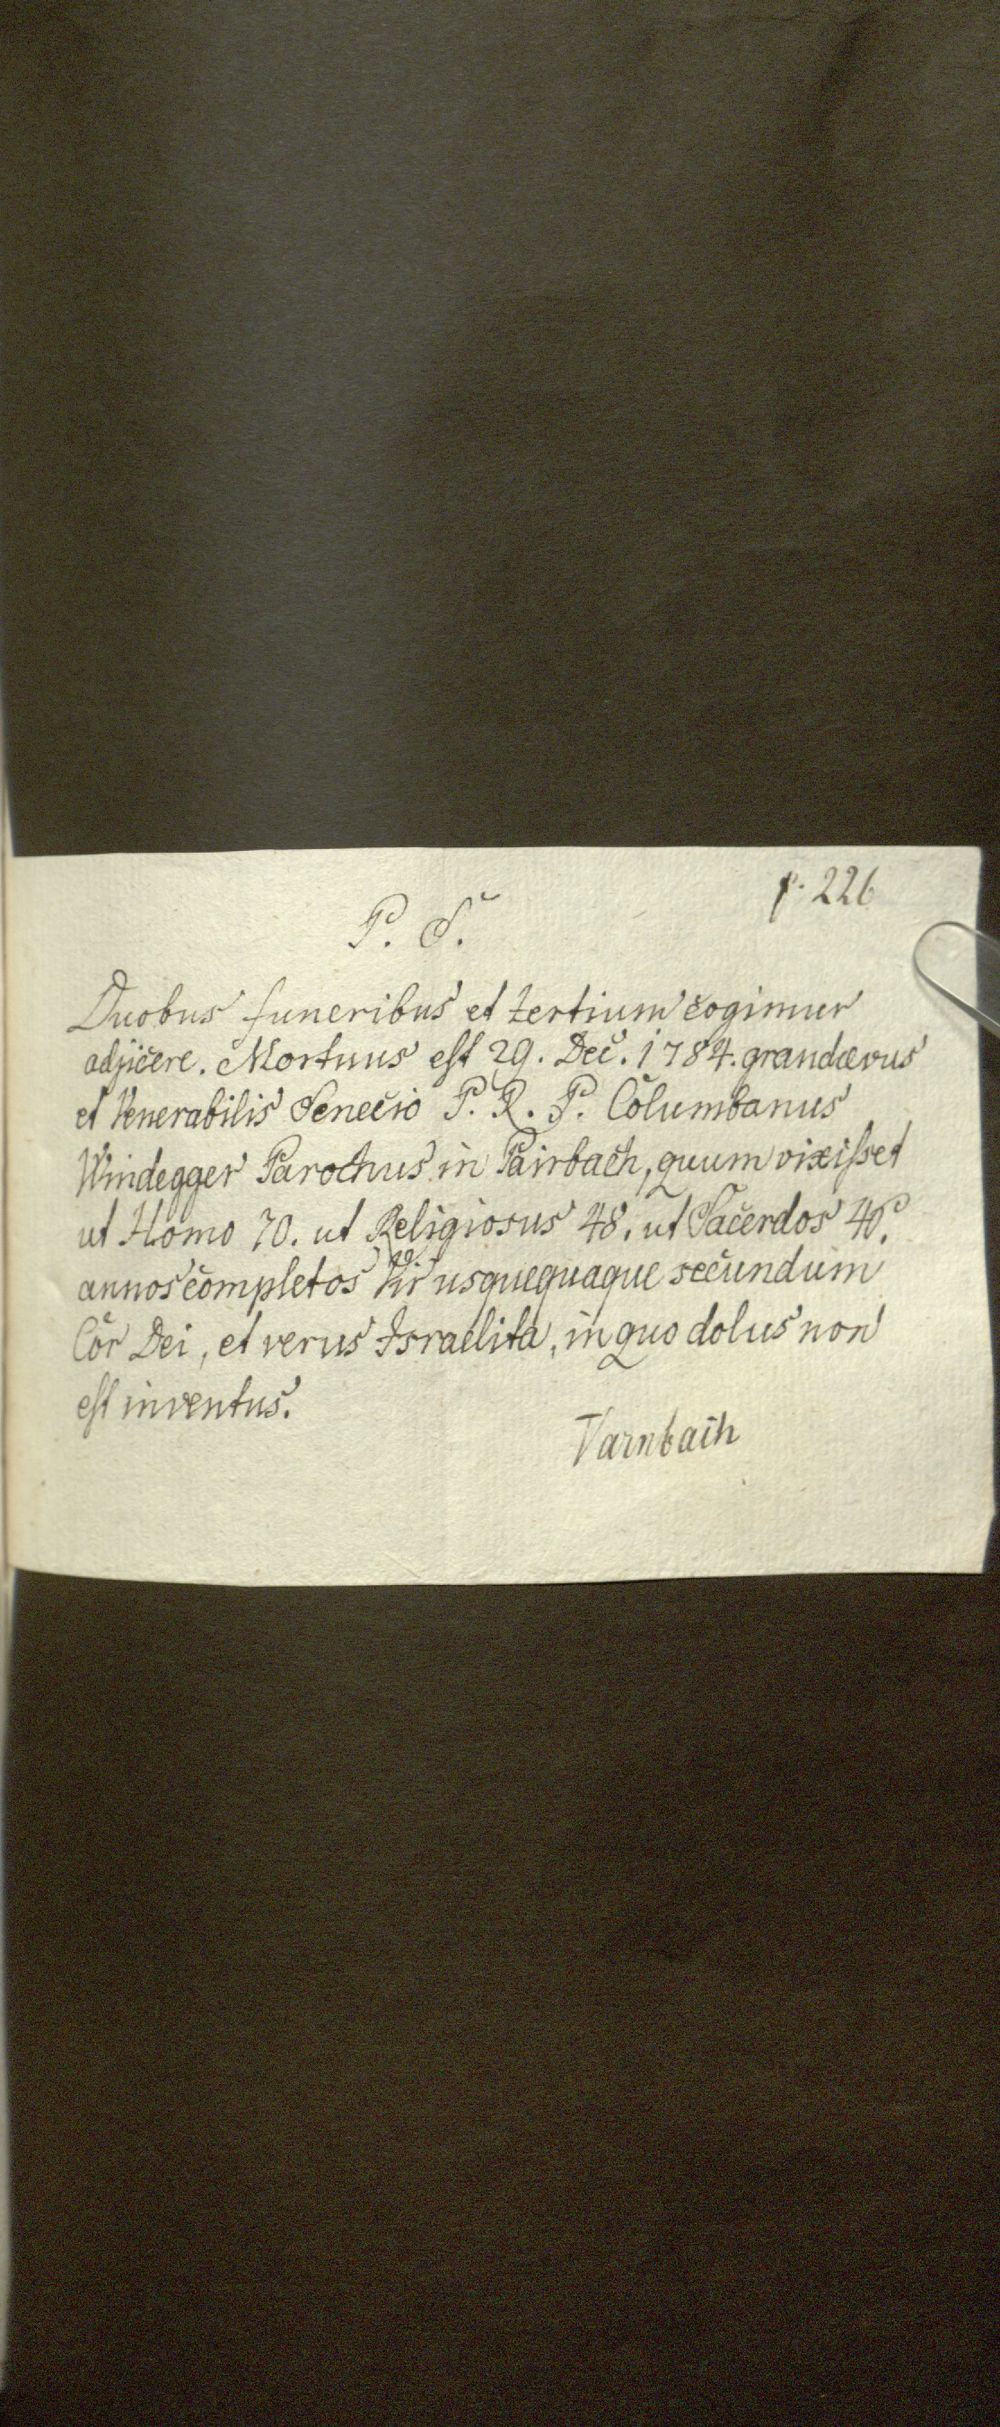 p. 226
P. S.
Duobus funeribus et tertium cogimur
adjicere. Mortuus est 29. Dec. 1784. grandævus
et Venerabilis Senecio P. R. P. Columbanus
Windegger Parochus in Pairbach, quum vixisset
ut Homo 70. ut Religiosus 48. ut Sacerdos 40.
annos completos Vir usquequaque secundum
Cor Dei, et verus Israelita, in quo dolus non
est inventus.
Varnbach